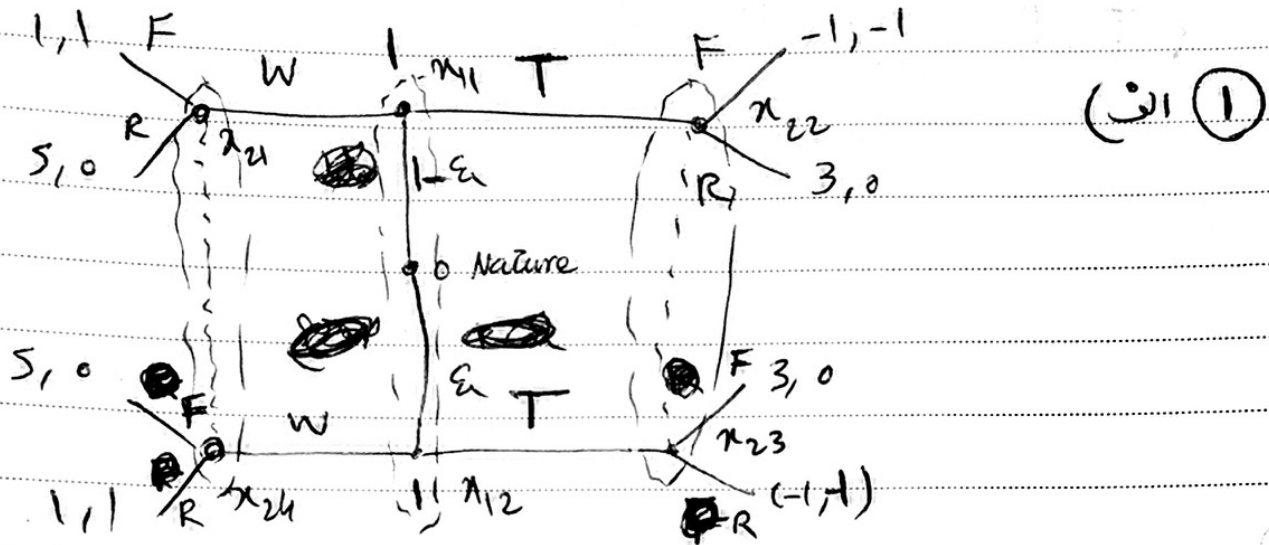 1, 1 F W 1 x11 T F -1, -1
① الف)
R x21 x22
5, 0 1-ε R 3, 0
0 Nature
5, 0 F W ε T F 3, 0
x23
1, 1 R x24 1 x12 R (-1, -1)